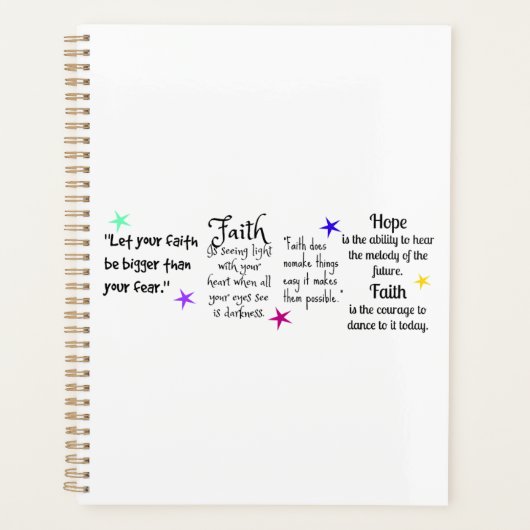 "Let your faith
be bigger than
your fear."
Faith
Is seeing light
with your
heart when all
your eyes see
is darkness.
"Faith does
nomake things
easy it makes
them possible."
Hope
is the ability to hear
the melody of the
future.
Faith
is the courage to
dance to it today.